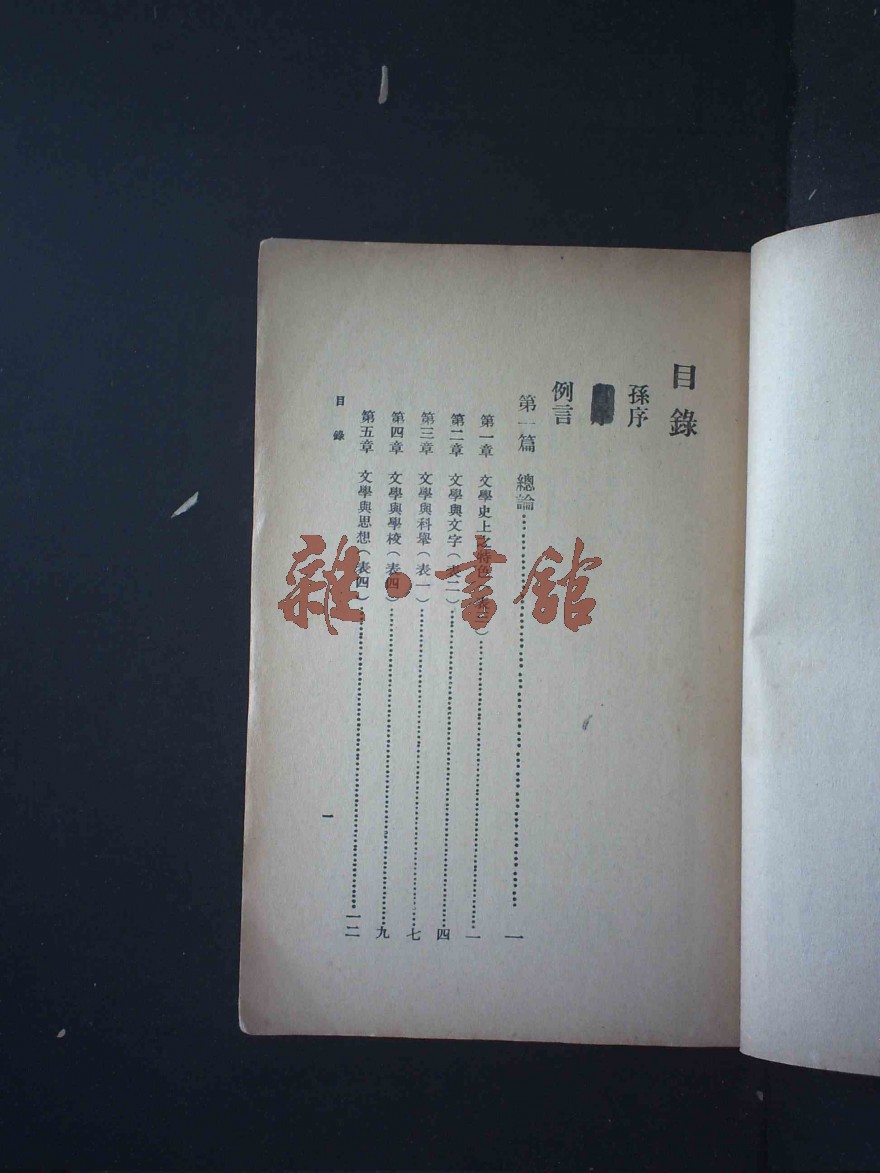 目錄
孫序
例言
第一篇 總論……一
第一章 文學史上之特色（表三）……一
第二章 文學與文字（表二）……四
第三章 文學與科舉（表一）……七
第四章 文學與學校（表四）……九
第五章 文學與思想（表四）……一二
目錄
一
雜·書館